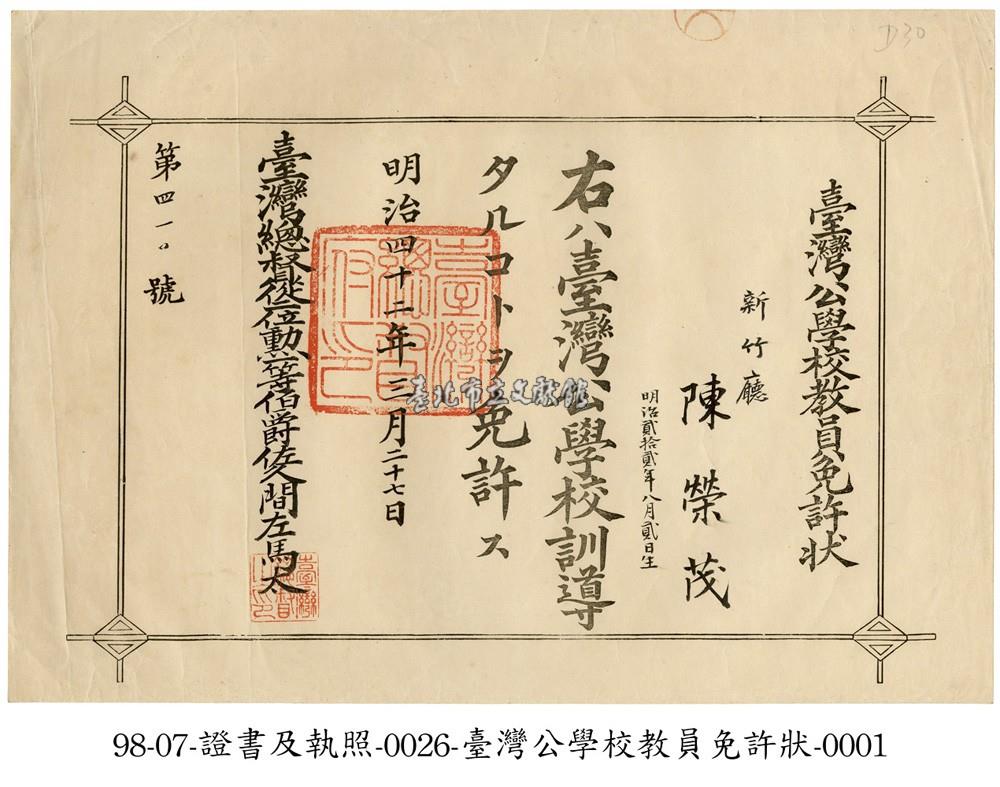 臺灣公學校教員免許狀
新竹廳
陳榮茂
明治貳拾貳年八月貳日生
右ハ臺灣公學校訓導
タルコトヲ免許ス
明治四十二年三月二十七日
臺灣總督從二位勳一等伯爵佐久間左馬太
第四一〇號
臺灣總督府之印
臺灣總督之印
臺北市立文獻館
D30
98-07-證書及執照-0026-臺灣公學校教員免許狀-0001